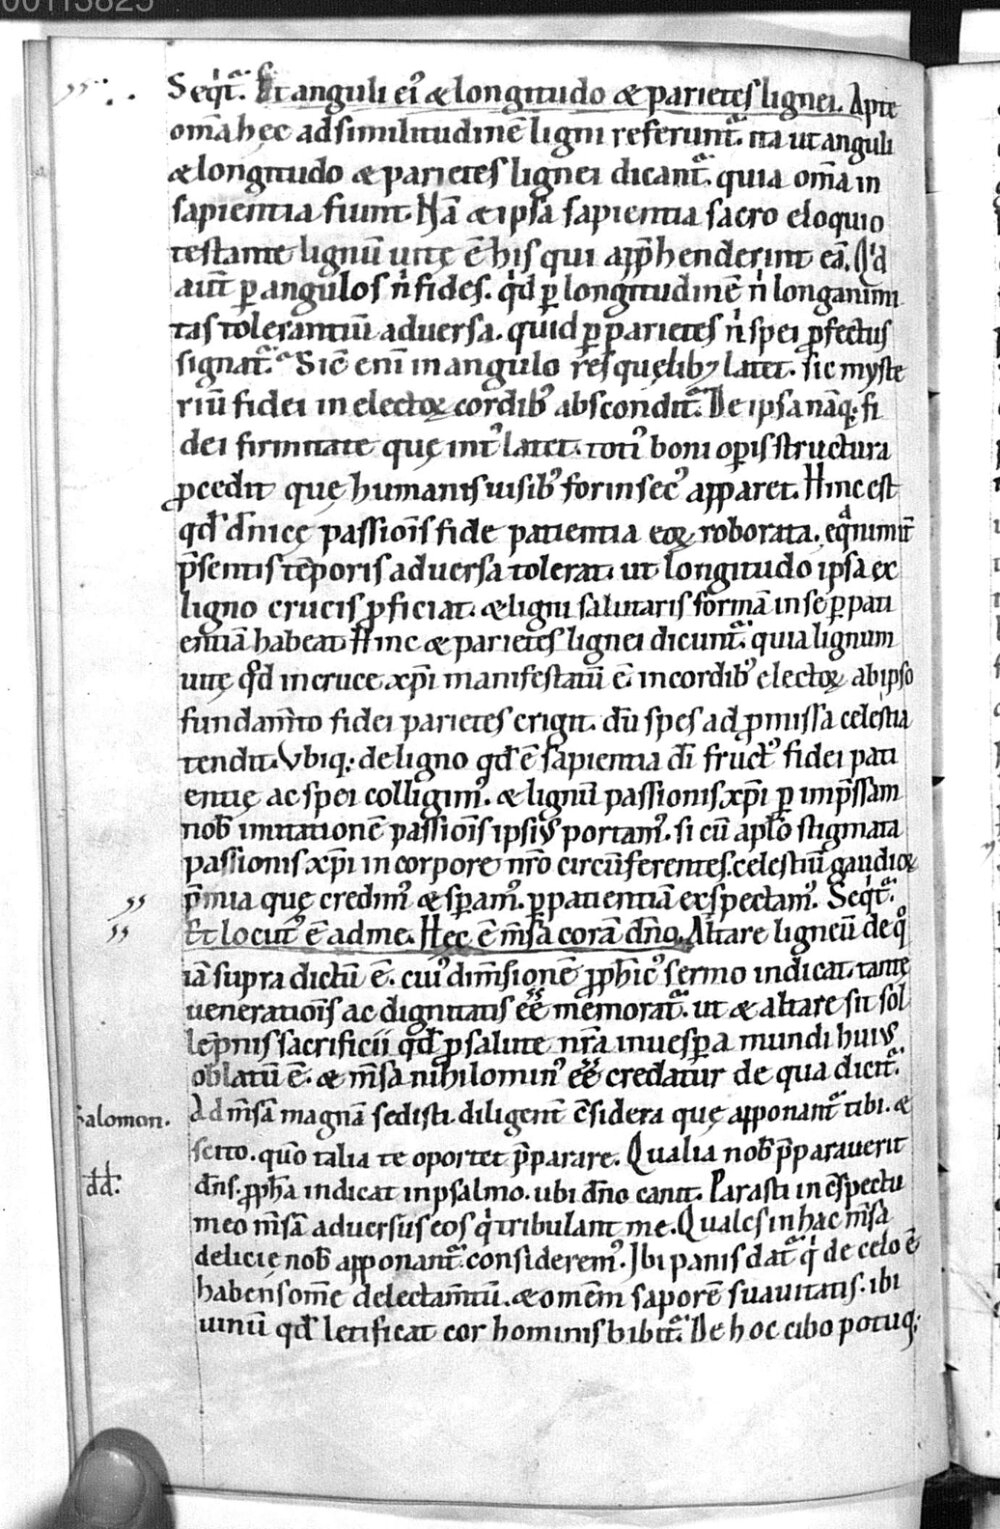 00113825
Seqͥt᷑. Et anguli ei᷒ & longitudo & parietes lignei. Apte
om̄a hęc ad similitudinē ligni referunt᷑. ita ut anguli
& longitudo & parietes lignei dicant᷑. quia om̄a in
sapientia fiunt. Nā & ipsa sapientia sacro eloquio
testante lignū uitę ē his qui app̄henderint eā. Qͥd
aūt ꝑ angulos nͥ fides. qͥd ꝑ longitudinē nͥ longanimi
tas tolerantiū aduersa. quid ꝑ parietes nͥ spei ꝓfectus
signat᷑. Sic̄ enī in angulo res quęlibꝫ latet. sic myste
riū fidei in electoꝝ cordibꝰ abscondit᷑. De ipsa nāq; fi
dei firmitate quę intꝰ latet. totiꝰ boni oꝑis structura
ꝓcedit quę humanis uisibꝰ forinsecꝰ apparet. Hinc est
qđ dn̄icę passiōis fide patientia eoꝝ roborata. eqͣnimit̄
p̄sentis tēporis aduersa tolerat. ut longitudo ipsa ex
ligno crucis ꝓficiat. & ligni salutaris formā in se ꝑ pati
entiā habeat. Hinc & parietes lignei dicunt᷑. quia lignum
uitę qđ in cruce xp̄i manifestatū ē. in cordibꝰ electoꝝ ab ipso
fundam̄to fidei parietes erigit. dū spes ad ꝓmissa celestia
tendit. Vbiq; de ligno qđ ē sapientia dī fructꝰ fidei pati
entię ac spei colligimꝰ. & lignū passionis xp̄i ꝑ imp̄ssam
nob̄ imitationē passiōis ipsiꝰ portamꝰ. si cū apl̄o stigmata
passionis xp̄i in corpore nr̄o circūferentes. celestiū gaudioꝝ
p̄mia quę credimꝰ & sꝑamꝰ. ꝑ patientiā exspectamꝰ. Seqͥt᷑.
Et locutꝰ ē ad me. Hec ē m̄sa corā dn̄o. Altare ligneū de qͦ
iā supra dictū ē. cuiꝰ dim̄sionē ꝓph̄icꝰ sermo indicat. tantę
uenerationis ac dignitatis eē memorat᷑. ut & altare sit sol
lēpnis sacrificii qđ ꝓ salute nr̄a in uesꝑa mundi huiꝰ
oblatū ē. & m̄sa nihilominꝰ eē credatur de qua dicit᷑.
Salomon.
Ad m̄sā magnā sedisti. diligent̄ c̄sidera quę apponant᷑ tibi. &
scito. qūo talia te oportet p̄parare. Qualia nob̄ p̄parauerit
dd̄.
dn̄s. ꝓph̄a indicat in psalmo. ubi dn̄o canit. Parasti in c̄spectu
meo m̄sā aduersus eos qͥ tribulant me. Quales in hac m̄sa
delicię nob̄ apponant᷑. consideremꝰ. Ibi panis dat᷑ qͥ de celo ē
habens om̄e delectam̄tū. & omēm saporē suauitatis. ibi
uinū qđ letificat cor hominis bibit᷑. De hoc cibo potuq;